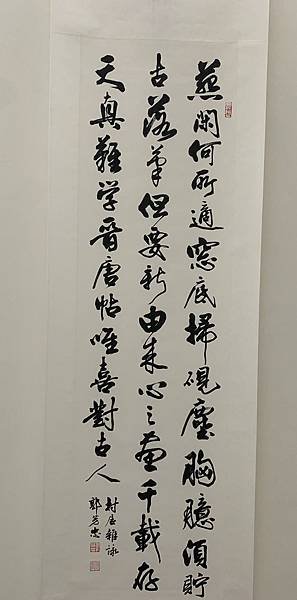 燕閑何所適窓底掃硯塵胸臆須貯
古落筆但要新由来心之画千載存
天真難学晉唐帖唯喜對古人
村居雜詠
郭芳忠